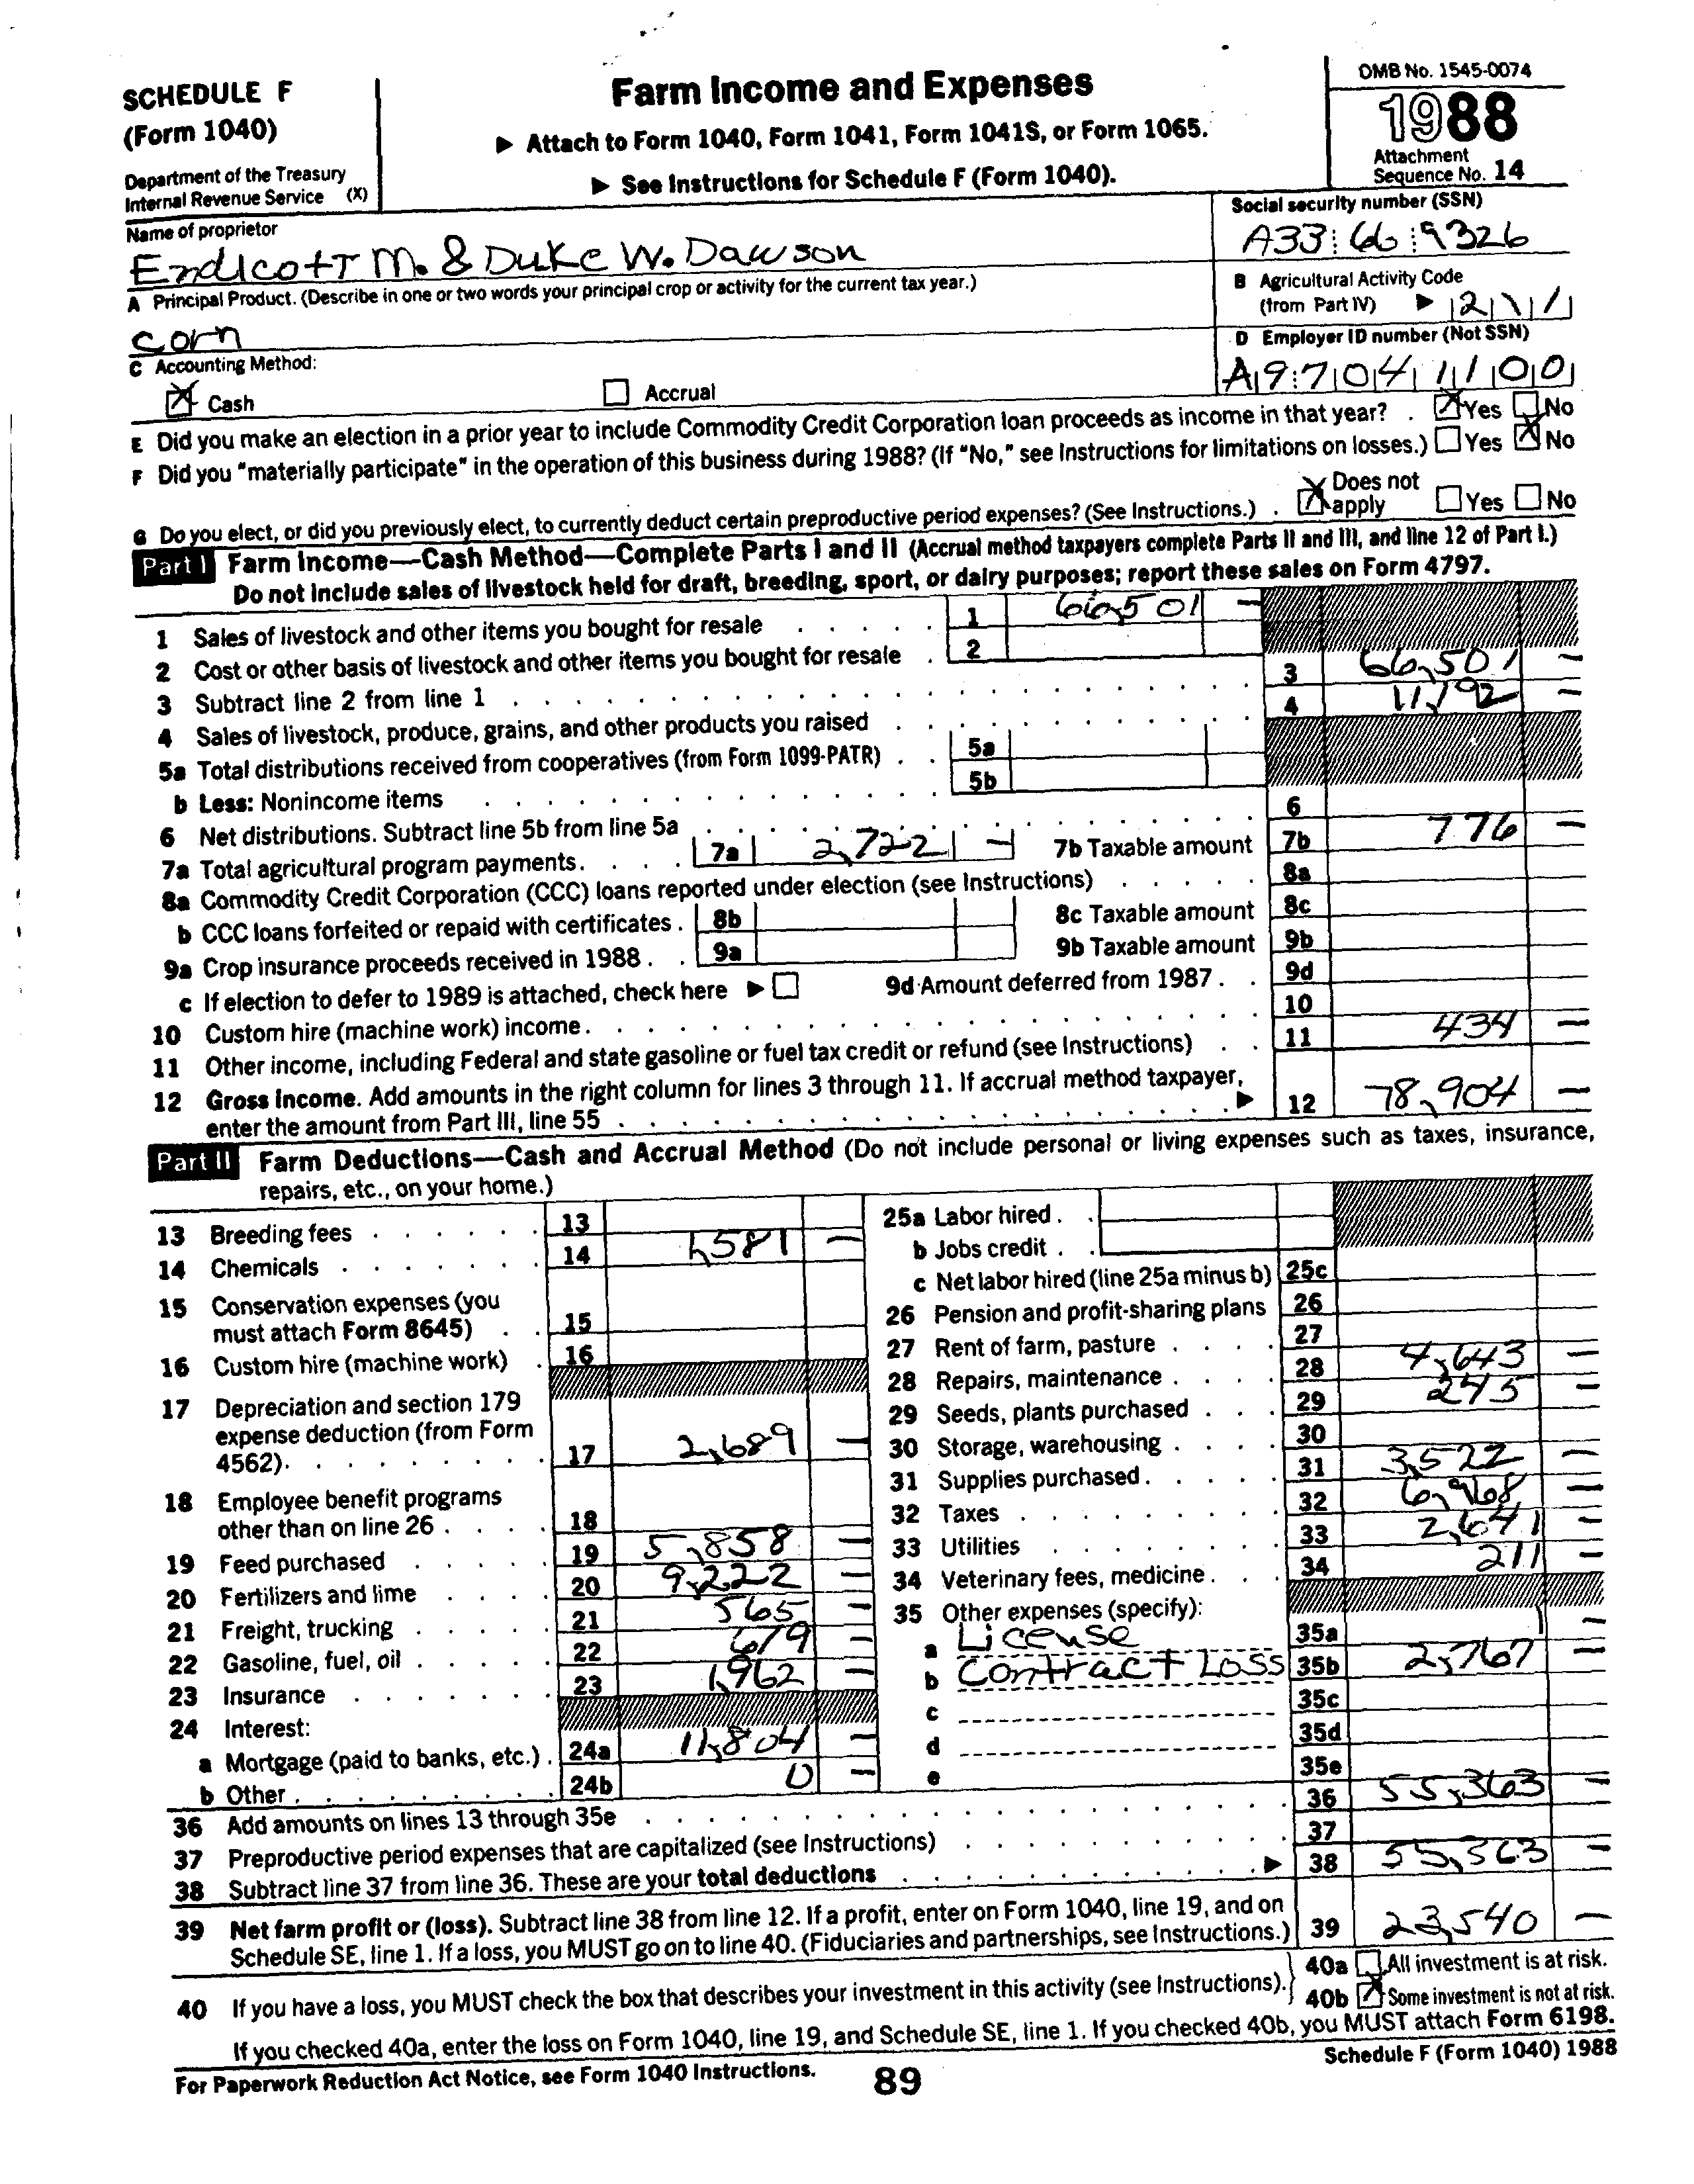 SCHEDULE F
(Form 1040)
Department of the Treasury
Internal Revenue Service (X)
Farm Income and Expenses
▶ Attach to Form 1040, Form 1041, Form 1041S, or Form 1065.
▶ See Instructions for Schedule F (Form 1040).
OMB No. 1545-0074
1988
Attachment
Sequence No. 14
Name of proprietor
Endicott M. & Duke W. Dawson
Social security number (SSN)
A33 66 9326
A Principal Product. (Describe in one or two words your principal crop or activity for the current tax year.)
corn
B Agricultural Activity Code
(from Part IV) ▶ 2 1 1
C Accounting Method:
☒ Cash ☐ Accrual
D Employer ID number (Not SSN)
A 9 7 0 4 1 1 0 0
E Did you make an election in a prior year to include Commodity Credit Corporation loan proceeds as income in that year? . ☒ Yes ☐ No
F Did you "materially participate" in the operation of this business during 1988? (If "No," see Instructions for limitations on losses.) ☐ Yes ☒ No
G Do you elect, or did you previously elect, to currently deduct certain preproductive period expenses? (See Instructions.) . ☒ Does not apply ☐ Yes ☐ No
Part I Farm Income—Cash Method—Complete Parts I and II (Accrual method taxpayers complete Parts II and III, and line 12 of Part I.)
Do not include sales of livestock held for draft, breeding, sport, or dairy purposes; report these sales on Form 4797.
1 Sales of livestock and other items you bought for resale 1 66,501 —
2 Cost or other basis of livestock and other items you bought for resale 2
3 Subtract line 2 from line 1 3 66,501 —
4 Sales of livestock, produce, grains, and other products you raised 4 11,192 —
5a Total distributions received from cooperatives (from Form 1099-PATR) 5a
b Less: Nonincome items 5b
6 Net distributions. Subtract line 5b from line 5a 6
7a Total agricultural program payments. 7a 2,722 — 7b Taxable amount 7b 776 —
8a Commodity Credit Corporation (CCC) loans reported under election (see Instructions) 8a
b CCC loans forfeited or repaid with certificates . 8b 8c Taxable amount 8c
9a Crop insurance proceeds received in 1988 . 9a 9b Taxable amount 9b
c If election to defer to 1989 is attached, check here ▶ ☐ 9d Amount deferred from 1987 . . 9d
10 Custom hire (machine work) income. 10
11 Other income, including Federal and state gasoline or fuel tax credit or refund (see Instructions) 11 434 —
12 Gross income. Add amounts in the right column for lines 3 through 11. If accrual method taxpayer,
enter the amount from Part III, line 55 ▶ 12 78,904 —
Part II Farm Deductions—Cash and Accrual Method (Do not include personal or living expenses such as taxes, insurance,
repairs, etc., on your home.)
13 Breeding fees 13
14 Chemicals 14 1,581 —
15 Conservation expenses (you
must attach Form 8645) 15
16 Custom hire (machine work) 16
17 Depreciation and section 179
expense deduction (from Form
4562). 17 2,689 —
18 Employee benefit programs
other than on line 26 18
19 Feed purchased 19 5,858 —
20 Fertilizers and lime 20 9,222 —
21 Freight, trucking 21 565 —
22 Gasoline, fuel, oil 22 679 —
23 Insurance 23 1,962 —
24 Interest:
a Mortgage (paid to banks, etc.) . 24a 11,804 —
b Other 24b 0 —
25a Labor hired .
b Jobs credit .
c Net labor hired (line 25a minus b) 25c
26 Pension and profit-sharing plans 26
27 Rent of farm, pasture 27
28 Repairs, maintenance 28 4,643 —
29 Seeds, plants purchased 29 245 —
30 Storage, warehousing 30
31 Supplies purchased. 31 3,522 —
32 Taxes 32 6,968 —
33 Utilities 33 2,641 —
34 Veterinary fees, medicine 34 211 —
35 Other expenses (specify):
a License 35a 1 —
b Contract Loss 35b 2,767 —
c 35c
d 35d
e 35e
36 Add amounts on lines 13 through 35e 36 55,363 —
37 Preproductive period expenses that are capitalized (see Instructions) 37
38 Subtract line 37 from line 36. These are your total deductions ▶ 38 55,363 —
39 Net farm profit or (loss). Subtract line 38 from line 12. If a profit, enter on Form 1040, line 19, and on
Schedule SE, line 1. If a loss, you MUST go on to line 40. (Fiduciaries and partnerships, see Instructions.) 39 23,540 —
40 If you have a loss, you MUST check the box that describes your investment in this activity (see Instructions).
40a ☐ All investment is at risk.
40b ☒ Some investment is not at risk.
If you checked 40a, enter the loss on Form 1040, line 19, and Schedule SE, line 1. If you checked 40b, you MUST attach Form 6198.
For Paperwork Reduction Act Notice, see Form 1040 Instructions. 89 Schedule F (Form 1040) 1988